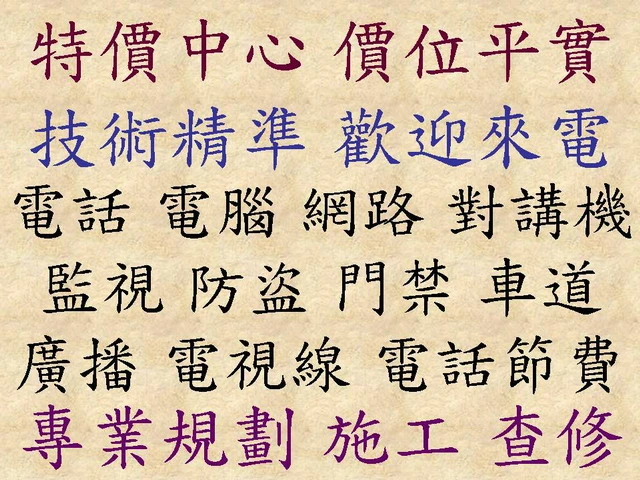 特價中心 價位平實
技術精準 歡迎來電
電話 電腦 網路 對講機
監視 防盜 門禁 車道
廣播 電視線 電話節費
專業規劃 施工 查修